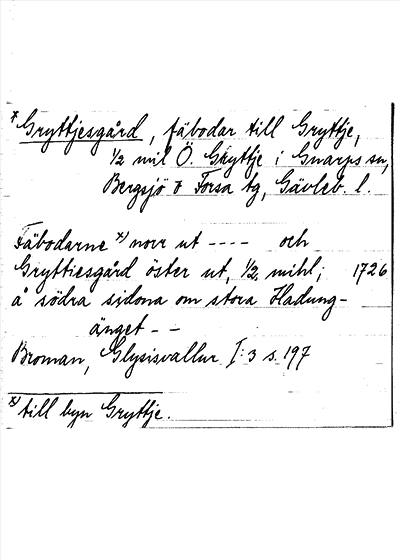 * Gryttjesgård, fäbodar till Gryttje,
1/2 mil Ö. Gryttje i Gnarps sn,
Bergsjö o Forsa tg, Gävleb. l.
Fäbodarne x) norr ut ---- och
Gryttiesgård öster ut, 1/2 mihl; 1726
å södra sidona om stora Hadung-
änget --
Broman, Glysisvallur I:3 s. 197
x) till byn Gryttje.